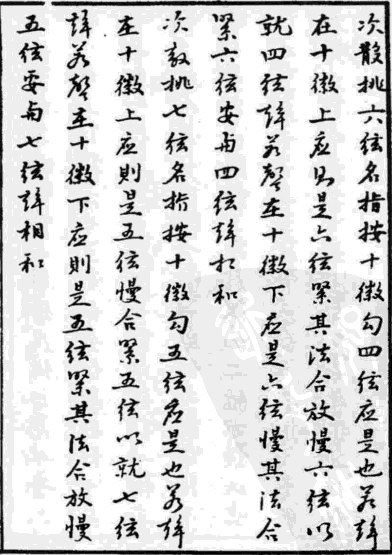 次散挑六弦名指按十徽勾四弦应是也若聲
在十徽上应則是六弦緊其法合放慢六弦以
就四弦聲若聲在十徽下应是六弦慢其法合
緊六弦要与四弦聲相和
次散挑七弦名指按十徽勾五弦应是也若聲
在十徽上应則是五弦慢合緊五弦以就七弦
聲若聲在十徽下应則是五弦緊其法合放慢
五弦要与七弦聲相和